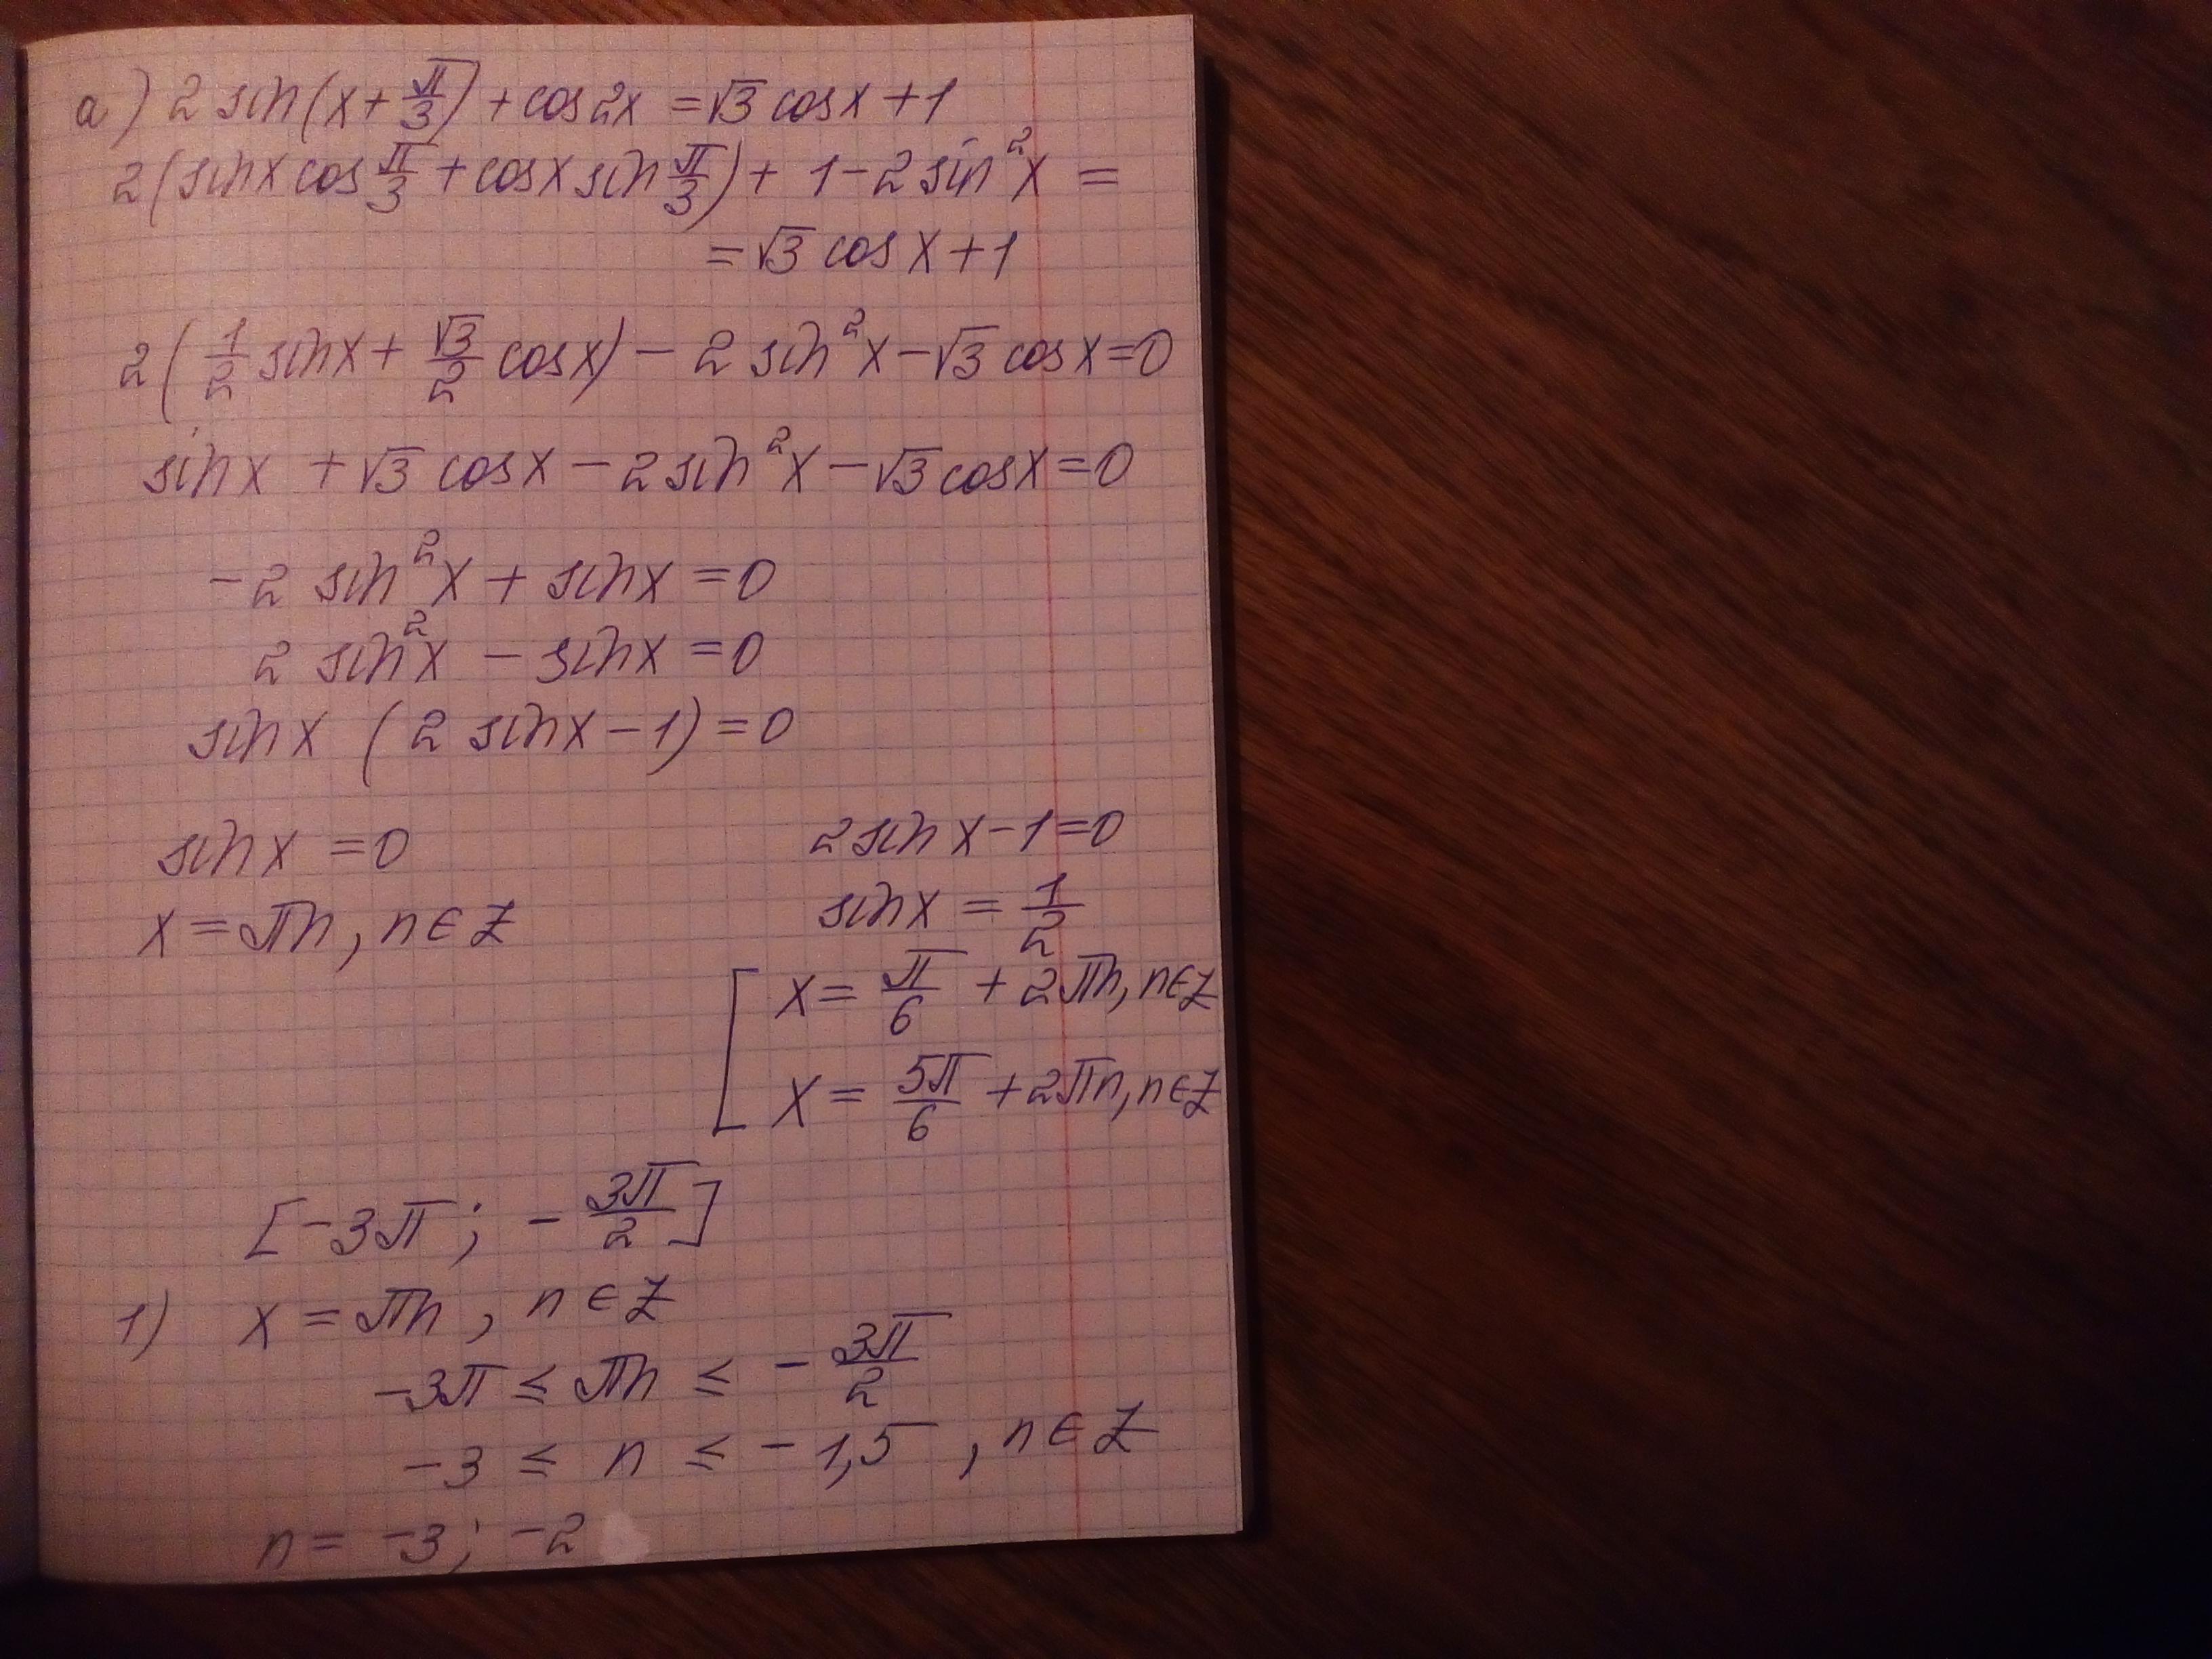 а) 2 sin(x + π/3) + cos 2x = √3 cos x + 1
2(sin x cos π/3 + cos x sin π/3) + 1 - 2 sin²x =
= √3 cos x + 1
2(1/2 sin x + √3/2 cos x) - 2 sin²x - √3 cos x = 0
sin x + √3 cos x - 2 sin²x - √3 cos x = 0
-2 sin²x + sin x = 0
2 sin²x - sin x = 0
sin x (2 sin x - 1) = 0
sin x = 0
x = πn, n ∈ Z
2 sin x - 1 = 0
sin x = 1/2
[ x = π/6 + 2πn, n ∈ Z
x = 5π/6 + 2πn, n ∈ Z
[-3π; -3π/2]
1) x = πn, n ∈ Z
-3π ≤ πn ≤ -3π/2
-3 ≤ n ≤ -1,5, n ∈ Z
n = -3; -2